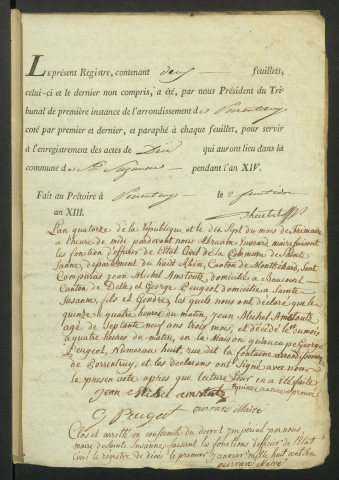 Le présent Registre, contenant deux feuillets,
celui-ci et le dernier non compris, a été, par nous Président du Tri-
bunal de première instance de l'arrondissement de Porentruy
coté par premier et dernier, et paraphé à chaque feuillet, pour servir
à l'enregistrement des actes de Décès qui auront lieu dans la
commune de Ste Suzanne pendant l'an XIV.
Fait au Prétoire à Porentruy le 2 fructidor
an XIII.
Lan quatorze de la Republique et le dix sept du mois de frimaire
a l'heure de midi pardevant nous Abraim Juvrard maire faisant
les fonction d'officier de l'Etat Civil de la Commune de Sainte
Sanne, departement du haut Rhin, Canton de Montbeliard, Sont
Comparus jean Michel Amstoutz, domicilié a Beaucourt
Canton de Delle, et George Peugeot domicilié a Sainte
Susanne, fils et Gendre les quels nous ont déclaré que le
quinze le quatre heures du matin, jean Michel Amstoutz
agé de Septante neuf ans trois mois, est décédé le du mois
a quatre heures du matin, en la Maison qu'occupe George
Peugeot, Numeraus huit, rue dit la fontaine arrondissement
de Porrentruy, et les declarans ont Signé avec nous
la presen acte apres que lecture Leur en a été faite
jean Michel amstutz
G Peugeot Maire
Clos et arretté en conformité du decret imperial par nous,
maire de Sainte Susanne faisant les fonctions d'officier de l'Etat
Civil le registre de décés le premier janvier mille huit cent six
Maire